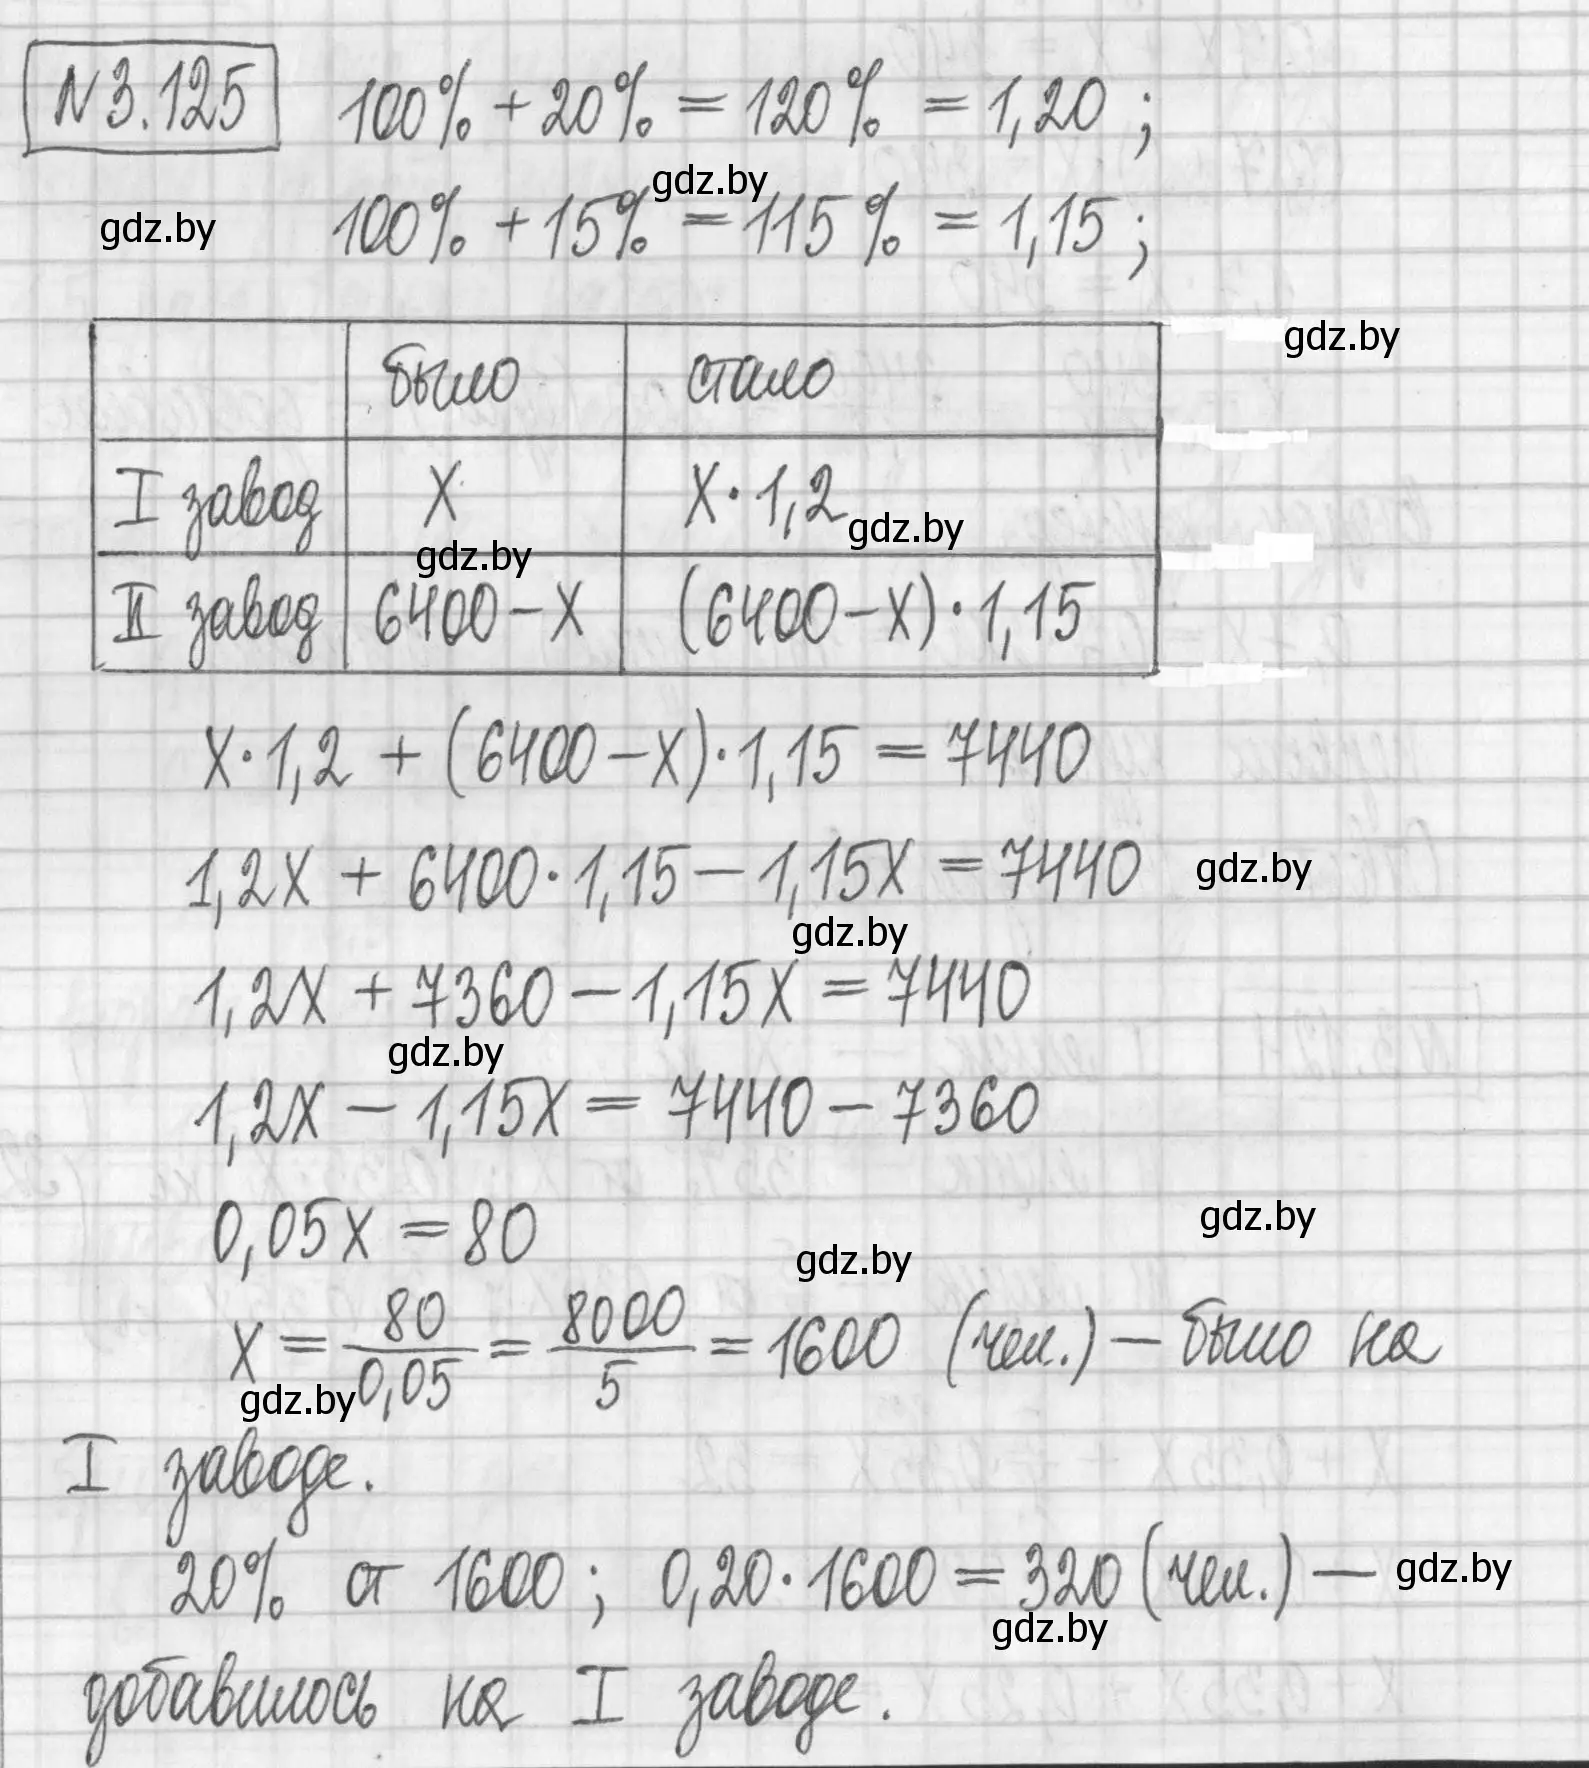 N 3.125 100% + 20% = 120% = 1,20 ;
gdz.by
gdz.by 100% + 15% = 115% = 1,15 ;
gdz.by
было стало
I завод X X · 1,2 gdz.by
gdz.by
II завод 6400 – X (6400 – X) · 1,15
X · 1,2 + (6400 – X) · 1,15 = 7440
1,2X + 6400 · 1,15 – 1,15X = 7440 gdz.by
gdz.by
1,2X + 7360 – 1,15X = 7440
gdz.by
1,2X – 1,15X = 7440 – 7360
0,05X = 80 gdz.by
gdz.by
X = 80/0,05 = 8000/5 = 1600 (чел.) – было на
gdz.by
I заводе.
20% от 1600 ; 0,20 · 1600 = 320 (чел.) – gdz.by
gdz.by
добавилось на I заводе.